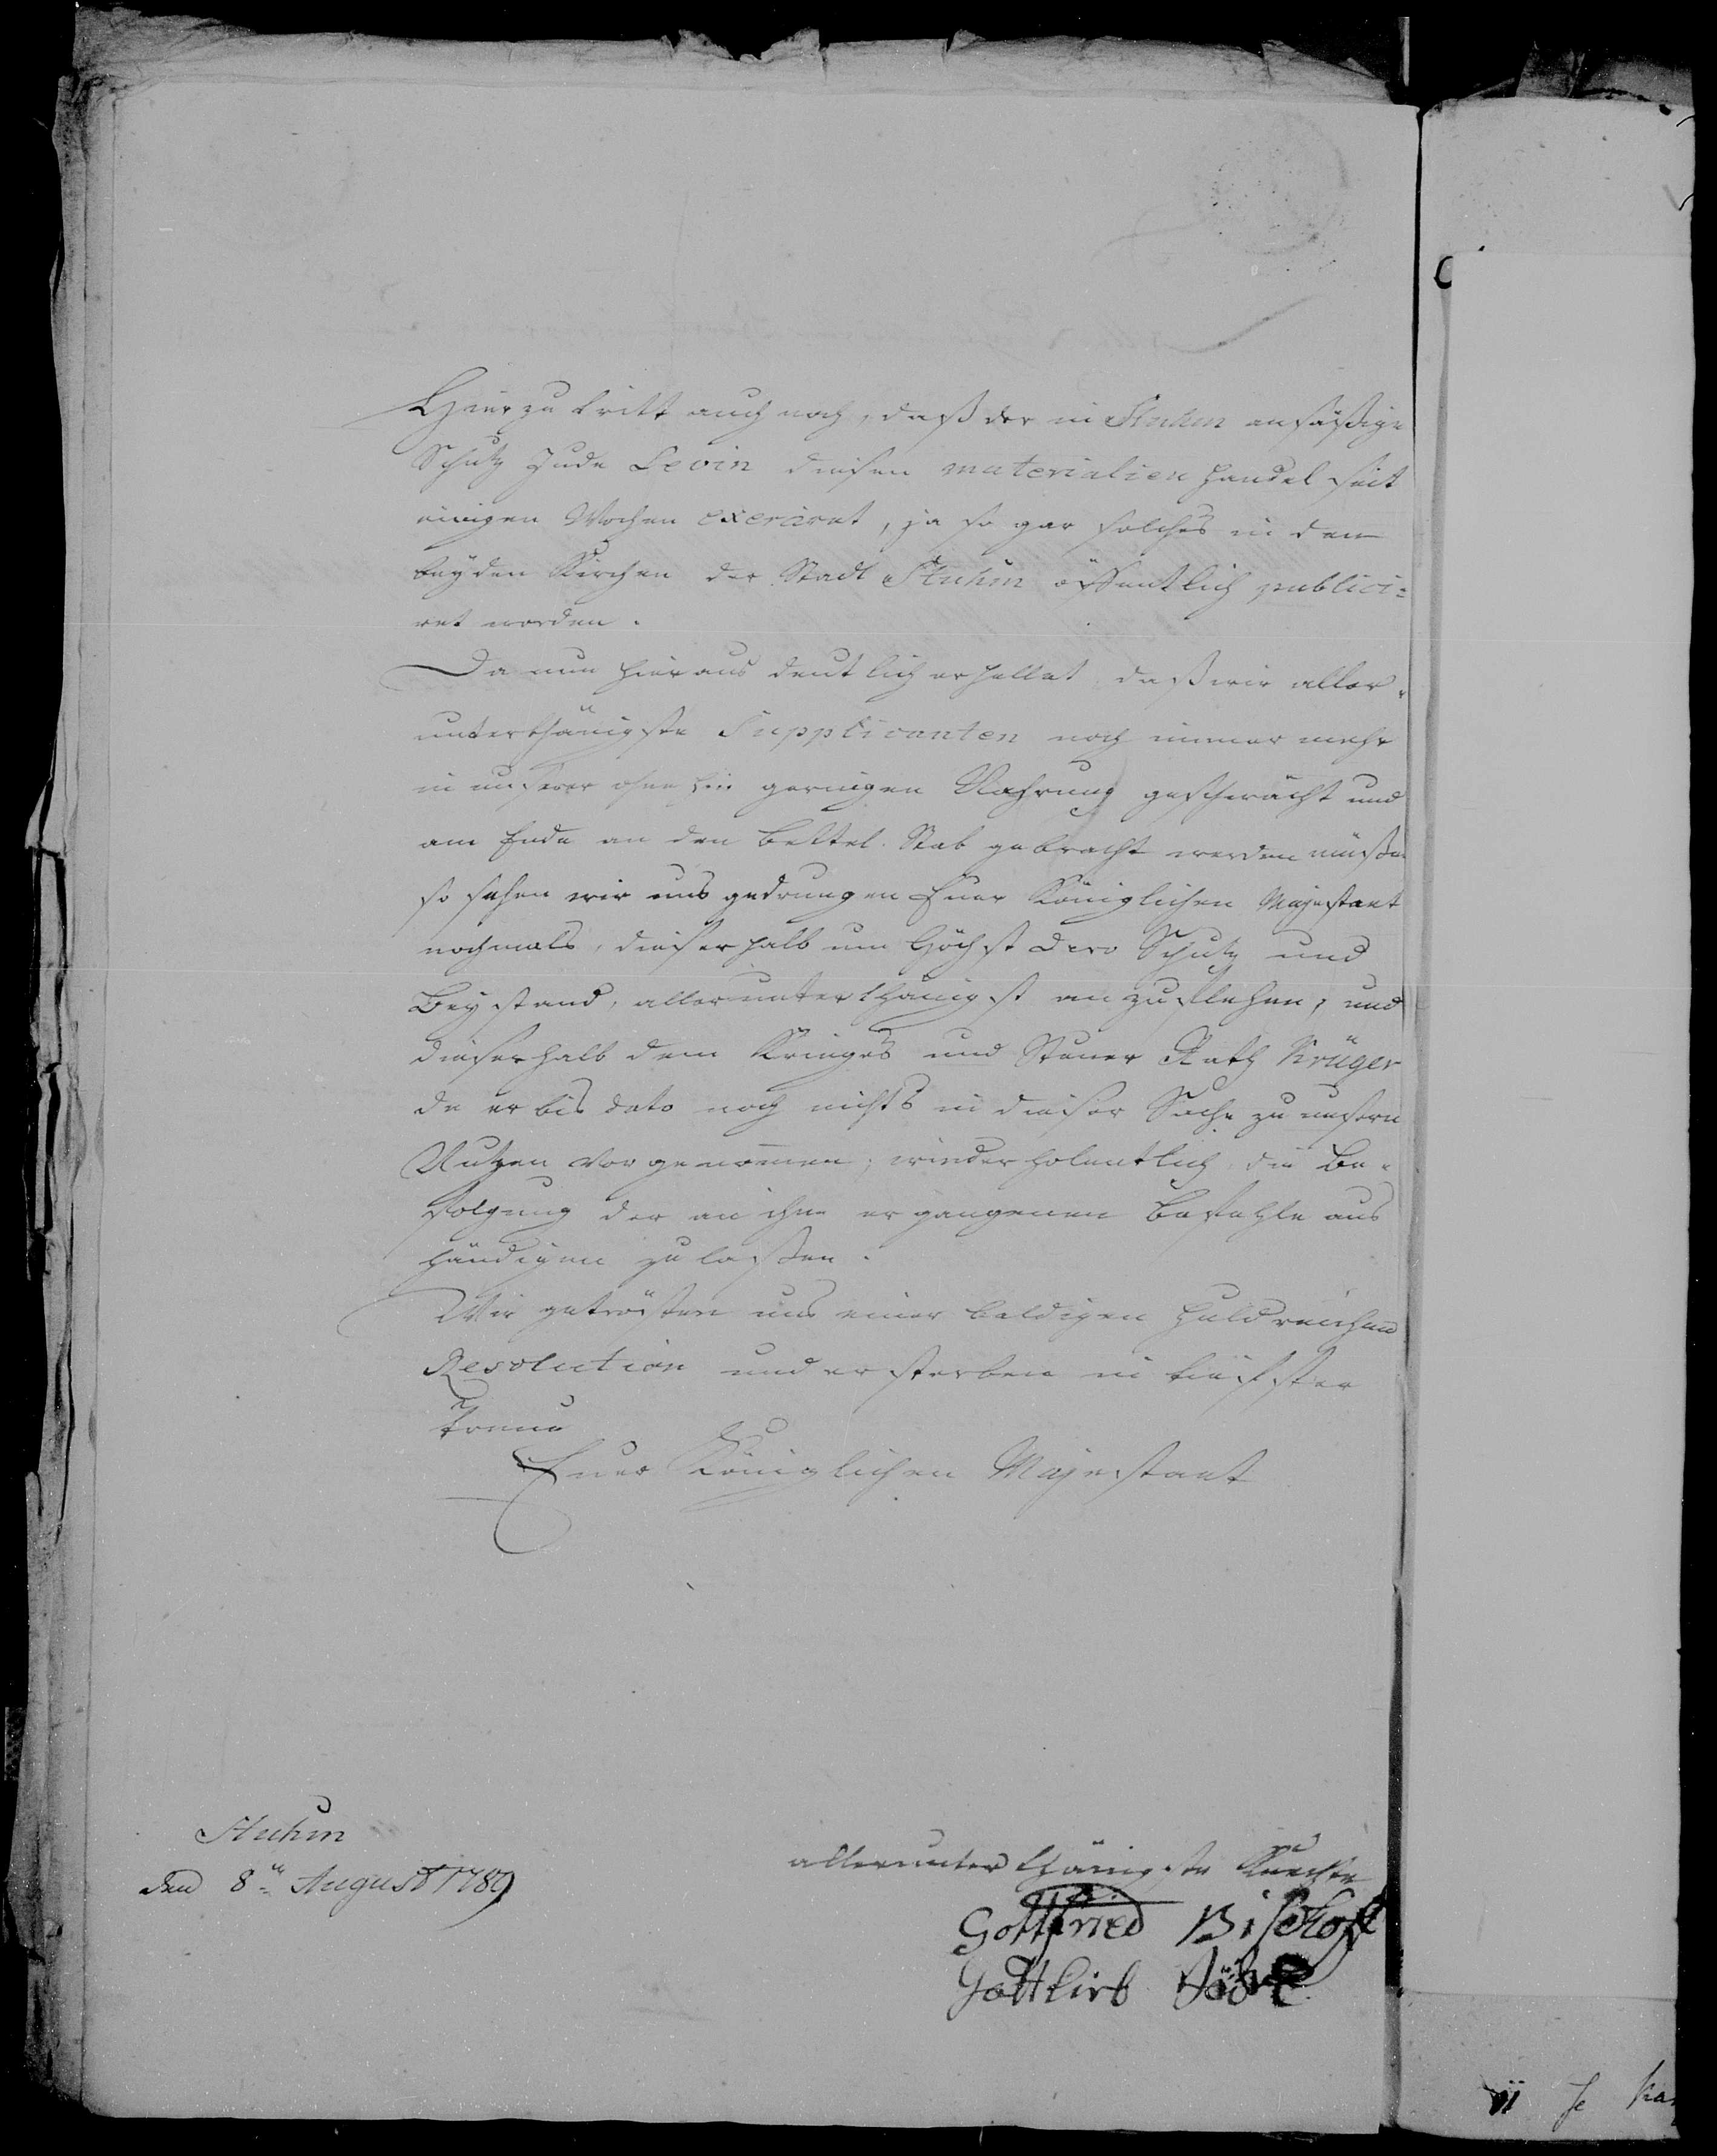 Hierzu tritt auch noch, daß der in Stuhm ansäßige
Schutz Jude Levin diesen materialien Handel seit
einigen Wochen exerciret, ja so gar solches in den
beyden Kirchen der Stadt Stuhm öffentlich publici=
ret worden.
Da nun hieraus deutlich erhellet daß wir aller-
unterthänigste Supplicanten noch immer mehr
in unserer ohnehin geringen Nahrung geschwächt und
am Ende an den Bettel Stab gebracht werden müßen
so sehen wir uns gedrungen Euer Königlichen Majestaet
nochmals, dieserhalb um Höchst Dero Schutz und
Beystand, allerunterthänigst anzuflehen, und
dieserhalb dem Krieges und Steuer Rath Krüger
da er bis dato noch nichts in dieser Sache zu unsern
Nutzen vorgenom̄en, wiederholentlich die Be-
folgung der an ihm ergangenen Befehle aus
händigen zu laßen.
Wir getrösten uns einer baldigen huldreichen
Resolution und ersterben in tiefster
Treue
Euer Königlichen Majestaet
Stuhm
den 8ten August 1789
allerunterthänigste Knechte
Gottfried Bischoff
Gottlieb